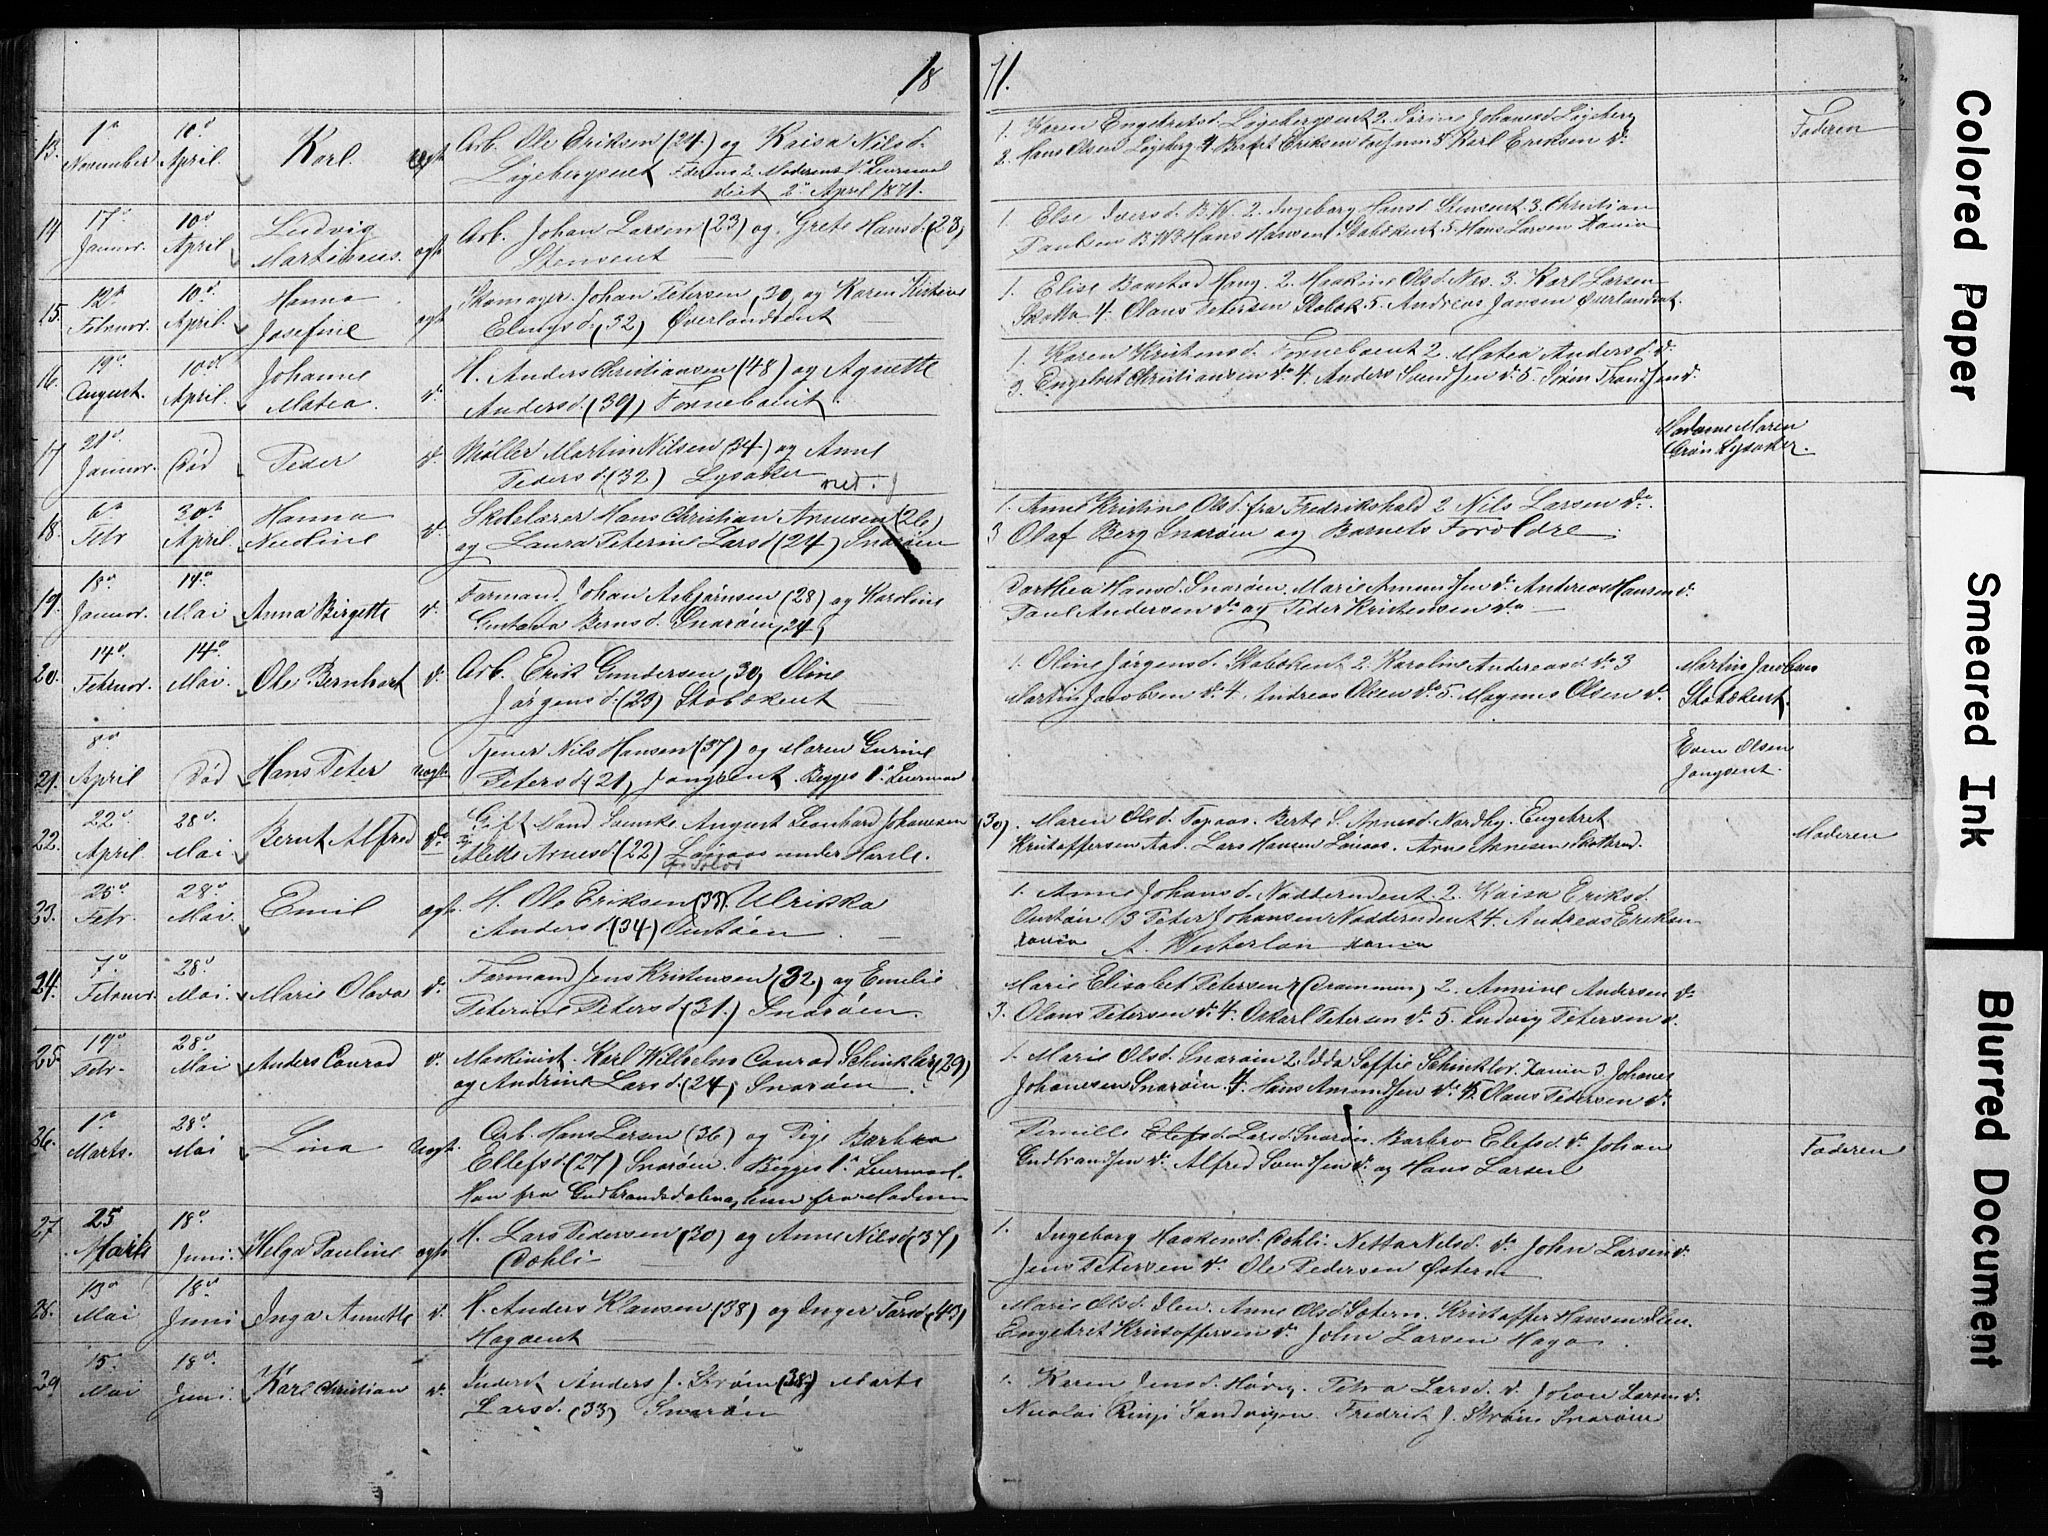 18
71.
13. 1ste November 10de April. Karl. uægt. Arb. Ole Eriksen (24.) og Kaisa Nilsd.
Ligebergeiet Føderens 2 Moderens 1ste Leiermaal
viet 2den April 1871.
1. Karen Engebretsd. Ligebergeiet 2. Sirine Johansd. Ligeberg
2. Hans Olsen Ligeberg 4 Eriksen 5 Karl Eriksen do.
Faderen
14 17de Januar. 10de April Ludvig Martinus. ægt. Arb. Johan Larsen (23) og Grete Hansd. (23)
Stenseiet
1. Else Iversd. B.W. 2. Ingeborg Hansd. Stenseiet 3. Christian
Paulsen B.W. Hans Hansen Stabækeiet 5. Hans Larsen Xania
15. 12te Februar. 10de April. Hanna Josefine ægt. Skomager Johan Petersen (30) og Karen Kirstine
(32) Øverlandseiet
1. Elise Baastad Haug. 2. Haakine Olsd. Næs. 3. Karl Larsen
Skotta 4. Olaus Petersen Stabæk 5. Andreas Jansen Øverlandseiet.
16. 19de August. 10de April. Johanne Matea. do. H. Anders Christiansen (48) og Agnette
Andersd. (39) Fornebøeiet.
1. Karen Kristensd. Fornebøeiet 2. Matea Andersd. do.
3. Engebret Christiansen do 4. Anders Svendsen do. 5. Søren Frandsen do.
17 21de Januar. Død Peder do. Møller Martin Nilsen (34) og Anne
Pedersd. (32) Lysaker
Madame Maren
Grøn Lysaker.
18. 6te Febr 30te April. Hanna Nicoline do. Skolelærer Hans Christian Arnesen (26)
og Laura Peterine Larsd. (24) Snarøen
1. Anne Kristine Olsd. fra Fredrikshald 2 Nils Larsen do.
3 Olaf Berg Snarøen og Barnets Forældre.
19. 18de Januar. 14de Mai Anna Birgette do. Formand Johan Asbjørnsen (28) og Karoline
Gustava Bernsd. Snarøen (24)
Dorthea Hansd. Snarøen. Marie Amundsen do. Andreas Hansen do.
Paul Andersen do og Peder Kristensen do
20. 14de Februar. 14de Mai. Ole Bernhart do. Arb. Erik Gundersen (30) Oline
Jørgensd. (23) Stabækeiet
1. Oline Jørgensd. Stabækeiet 2. Karoline Andreasd. do 3
Martin Jacobsen do. 4. Andreas Olsen do 5. Magnus Olsen do.
Martin Jacobsen
Stabækeiet.
21. 8de April Død Hans Peter uægte. Tjener Nils Hansen (37) og Maren Gurine
Petersd. (21) Jongseiet. Begges 1ste Leiermaal
Even Olsen
Jongseiet.
22. 22de April. 28de Mai Bernt Alfred do Gift Mand Svenske August Leonhard Johanesen (30).
og Alette Arnesd. (22) Lønaas under Hasle.
Maren Olsd. Topaas. Berte S. Arnesd. Nordby. Engebret
Kristoffersen Aas. Lars Hansen Lønaas. Arne Arnesen Skotterud.
Moderen
23. 25de Febr. 28de Mai. Emil ægt. H. Ole Eriksen (35). Ulrikka
Andersd. (34) Ourtøen.
1. Anne Johansd. Nadderudeiet 2. Kaisa Eriksd.
Ourtøen 3 Peter Johansen Nadderudeiet 4. Andreas Eriksen
Xania A. Westerlon Xania
24. 7de Februar. 28de Mai. Marie Olava do. Formand Jens Kristensen (32) og Emelie
Peterine Petersd. (31.) Snarøen.
Marie Elisabet Petersen (Drammen) 2. Annine Andersen do
3. Olaus Petersen do. 4. Oskarl Petersen do. 5. Ludvig Petersen do.
25. 19de Febr. 28de Mai Anders Conrad do. Maskinist. Karl Wilhelm Conrad Schinkler (29)
og Andrine Larsd. (24) Snarøen
1. Marie Olsd. Snarøen 2. Idda Soffie Schinkler. Xania 3 Johanes
Johanesen Snarøen. 4. Hans Amundsen do. 5. Olaus Pedersen do.
26. 1ste Marts. 28de Mai Lina uægt. Arb. Hans Larsen (36) og Pige Barbra
Ellefsd. (27) Snarøen. Begges 1ste Leiermaal.
Han fra Gudbrandsdalen, hun fra Modum
Pernille Elefsd. Larsd. Snarøen. Barbro Elefsd. do. Johan
Gudbrandsen do. Alfred Svendsen do. og Hans Larsen
Faderen
27. 25 Marts 18de Juni. Helga Pauline ægt. H. Lars Pedersen (30) og Anne Nilsd. (37)
Dæhli
1. Ingeborg Haakensd. Dæhli. Netta Nilsd. do. John Larsen do.
Jens Petersen do. Ole Pedersen Østern
28. 13de Mai 18de Juni Inga Annette do. H. Anders Klausen (38) og Inger Larsd. (43)
Hagaeiet
Marie Olsd. Ilen. Anne Olsd. Sætern. Kristoffer Hansen Ilen.
Engebret Kristoffersen do. John Larsen Haga.
29 15. Mai 18de Juni. Karl Christian do. Inderst Anders J. Strøm (38) Marte
Larsd. (33) Snarøen
1. Karen Jensd. Høvig. Petra Larsd. do. Johan Larsen do.
Nicolai Ringi Sandvigen. Fredrik J. Strøm Snarøen
Colored Paper
Smeared Ink
Blurred Document